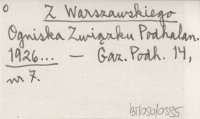 Z Warszawskiego
Ogniska Związku Podhalan.
1926... — Gaz. Podh. 14,
nr 7.